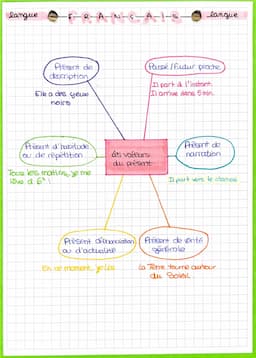 langue FRANÇAIS langue
Présent de
description
Elle a des yeux
noirs
Passé/Futur proche
Il part à l'instant.
Il arrive dans 5min.
Présent d'habitude
ou de répétition
Tous les matins, je me
lève à 6h !
les valeurs
du présent
Présent de
narration
Il part vers le chateau
Présent d'énonciation
ou d'actualité
En ce moment, je lis
Présent de vérité
générale
La Terre tourne autour
du Soleil.